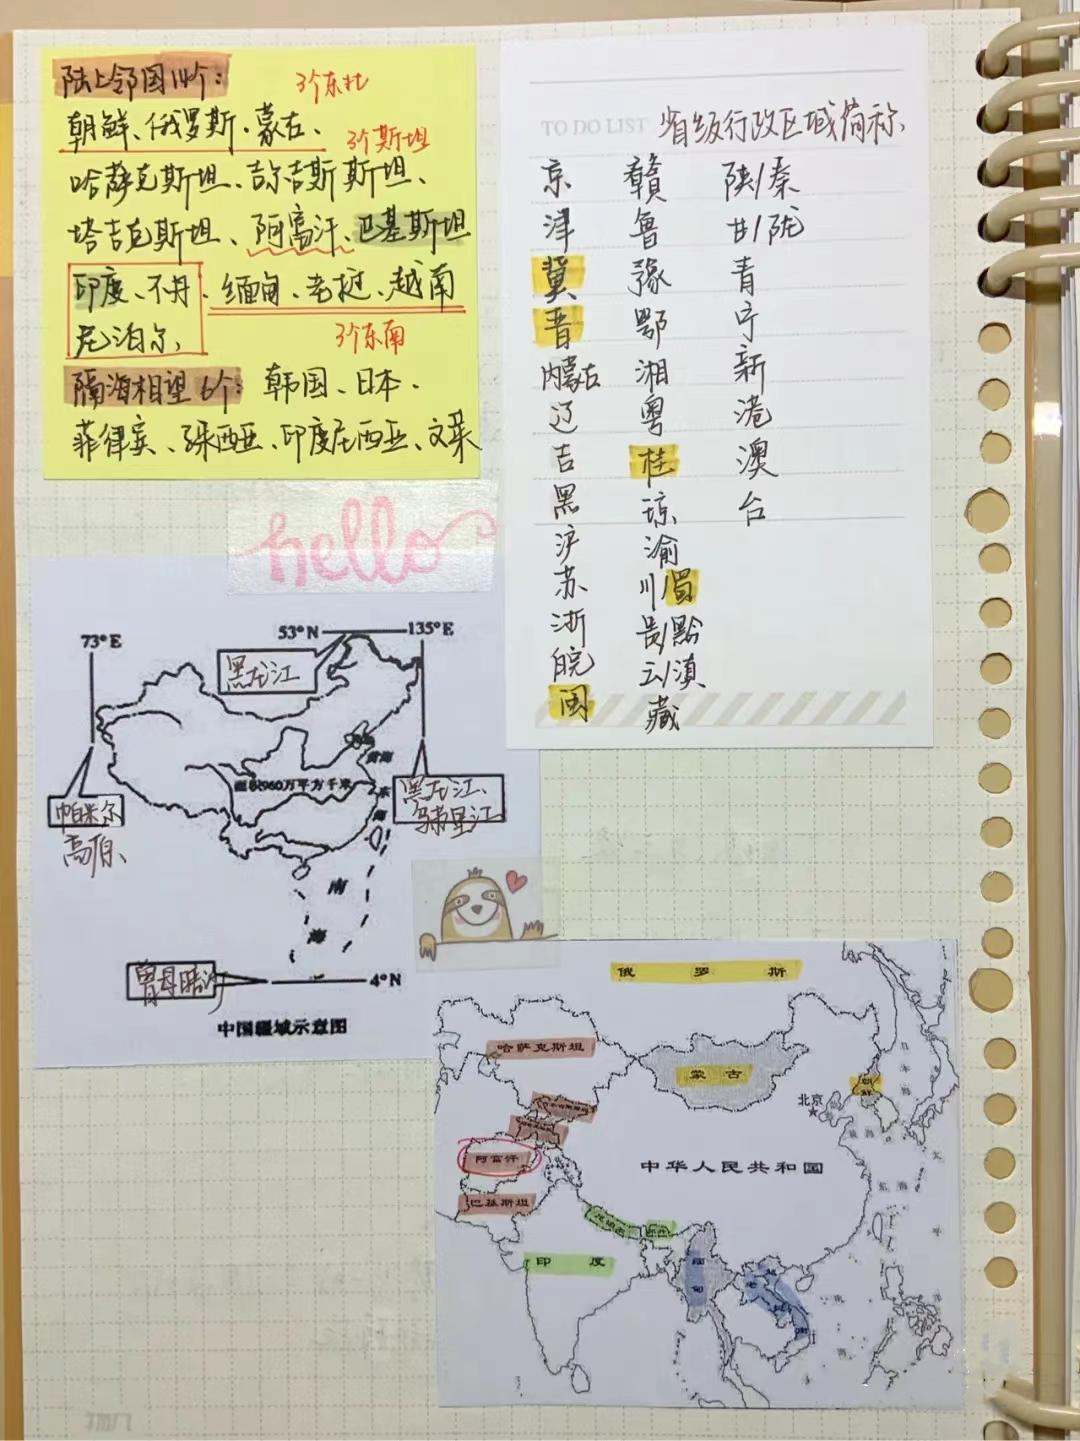 陆上邻国14个:
3个东北
朝鲜、俄罗斯、蒙古、
3个斯坦
哈萨克斯坦、吉尔吉斯斯坦、
塔吉克斯坦、阿富汗、巴基斯坦
印度、不丹、缅甸、老挝、越南
尼泊尔、
3个东南
隔海相望6个: 韩国、日本、
菲律宾、马来西亚、印度尼西亚、文莱
TO DO LIST 省级行政区域简称
京 赣 陕/秦
津 鲁 甘/陇
冀 豫 青
晋 鄂 宁
内蒙古 湘 新
辽 粤 港
吉 桂 澳
黑 琼 台
沪 渝
苏 川/蜀
浙 贵/黔
皖 云/滇
闽 藏
hello
73°E 53°N 135°E
黑龙江
黄海
面积960万平方千米
东海
黑龙江、
乌苏里江
帕米尔
高原、
南
海
曾母暗沙
4°N
中国疆域示意图
俄罗斯
哈萨克斯坦
蒙古
朝鲜
北京
阿富汗
中华人民共和国
巴基斯坦
尼泊尔
印度
缅甸
老
越
南